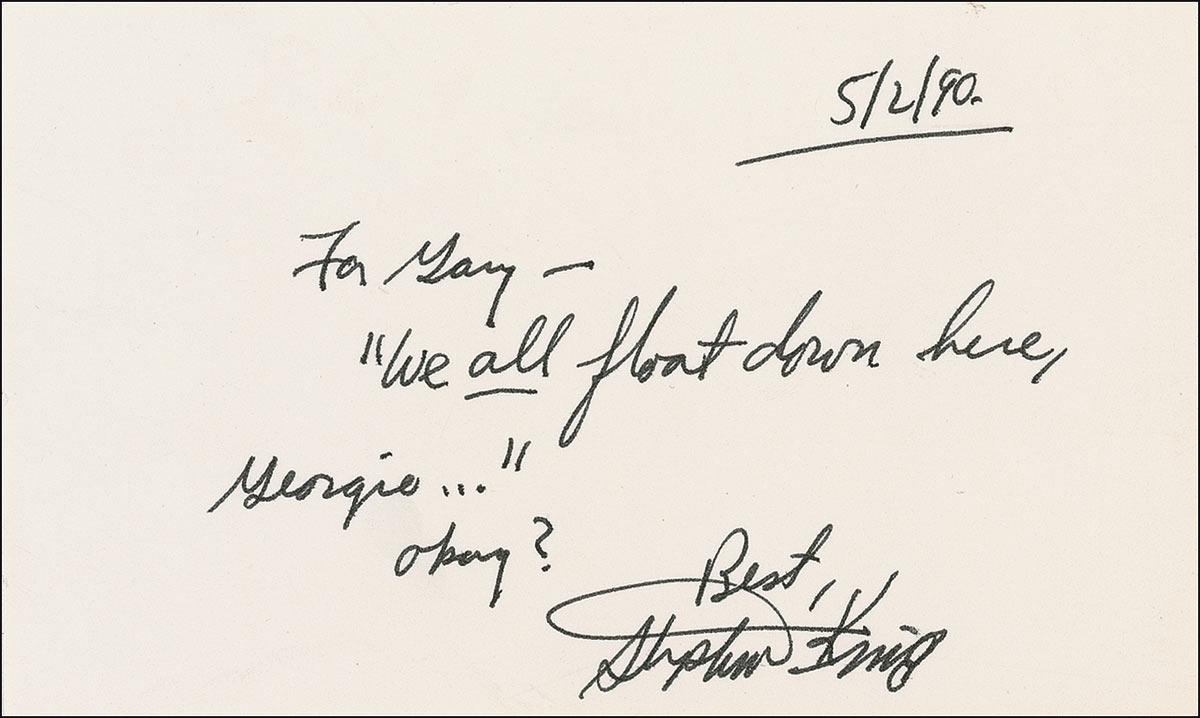 5/2/90.
For Gary –
"We all float down here,
Georgie..."
okay?
Best,
Stephen King